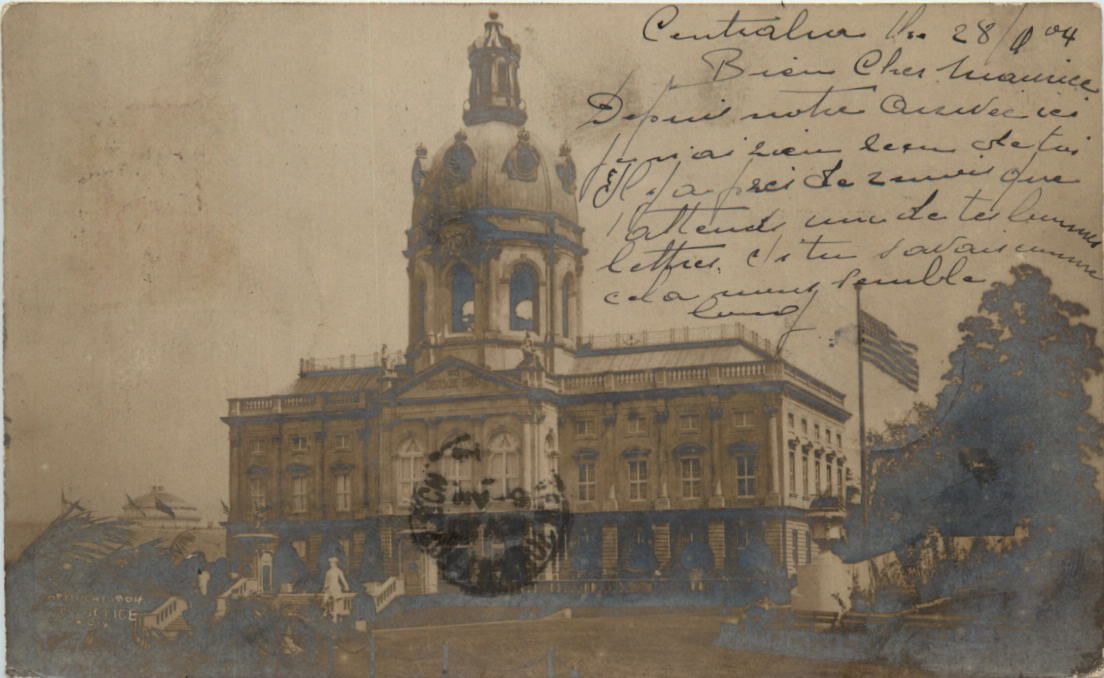 Centralia the 28/9 04
Bien Cher Maurice
Depuis notre arrivée ici
je n'ai rien reçu de toi
Il y a près de 2 mois que
j'attends une de tes bonnes
lettres. Si tu savais comme
cela nous semble
long
COPYRIGHT 1904